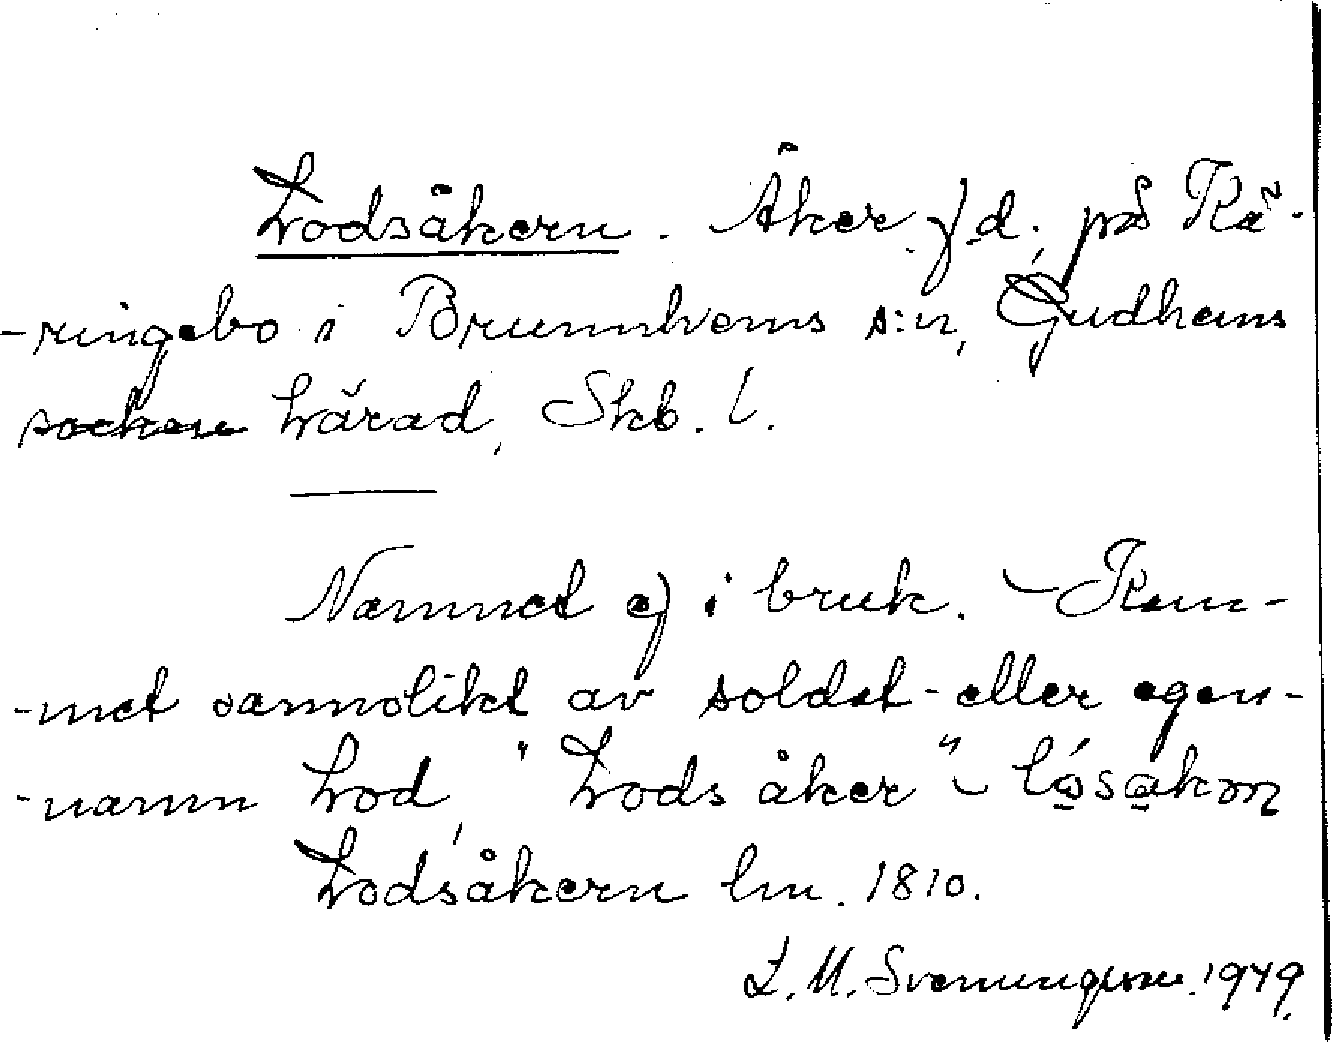 Lodsåkern. Åker f.d. på Kä-
-ringebo i Brunnhems s:n, Gudhems
socken härad, Skb. l.
Namnet ej i bruk. – Kom-
-met sannolikt av soldat- eller egen-
-namn Lod, "Lods åker" – lósåkən
Lodsåkern lm. 1810.
L. M. Svenungsson. 1949.